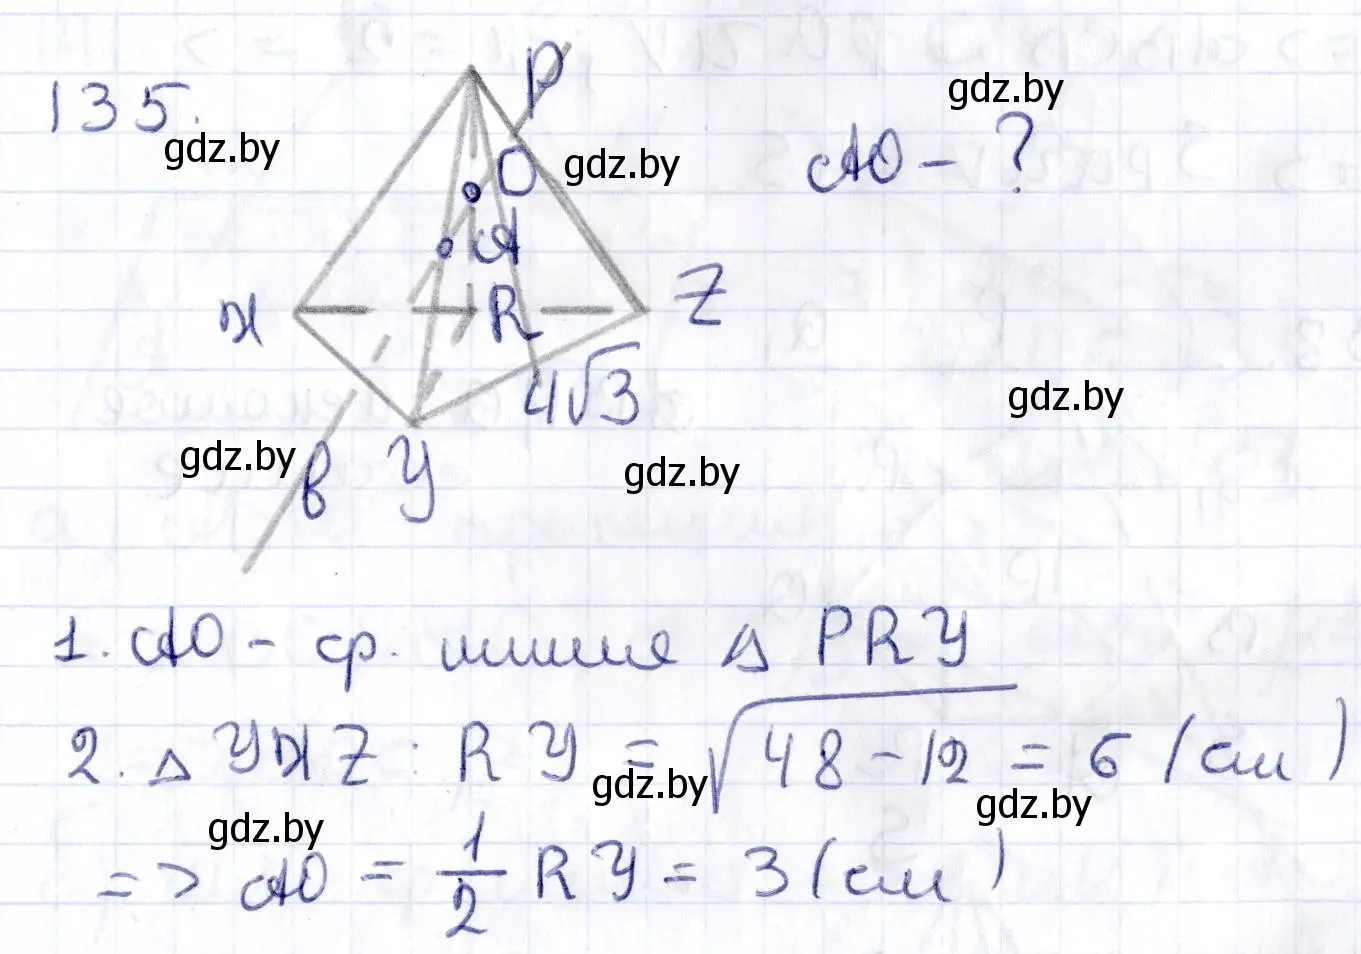 135.
gdz.by
P
O
gdz.by
gdz.by
AO - ?
A
X
R
Z
4√3
gdz.by
gdz.by
в
У
gdz.by
1. AO - ср. линия Δ PRY
2. Δ YXZ: RY = √48-12 = 6 (см)
gdz.by
gdz.by
gdz.by
=> AO = 1/2 RY = 3 (см)